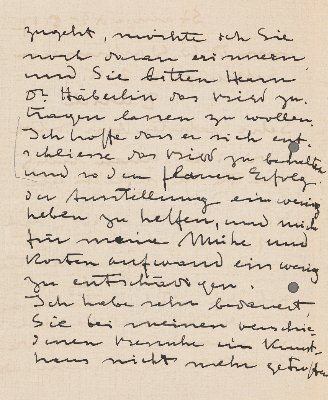 zugeht, möchte ich Sie
noch daran erinnern
und Sie bitten Herrn
Dr. Häberlin das Bild zu-
tragen lassen zu wollen.
Ich hoffe dass er sich ent-
schliesse das Bild zu behalten
und so den flauen Erfolg
der Ausstellung ein wenig
heben zu helfen, und mich
für meine Mühe und
Kosten aufwand ein wenig
zu entschädigen.
Ich habe sehr bedauert
Sie bei meinen verschie-
denen Besuche im Kunst-
haus nicht mehr getroffen